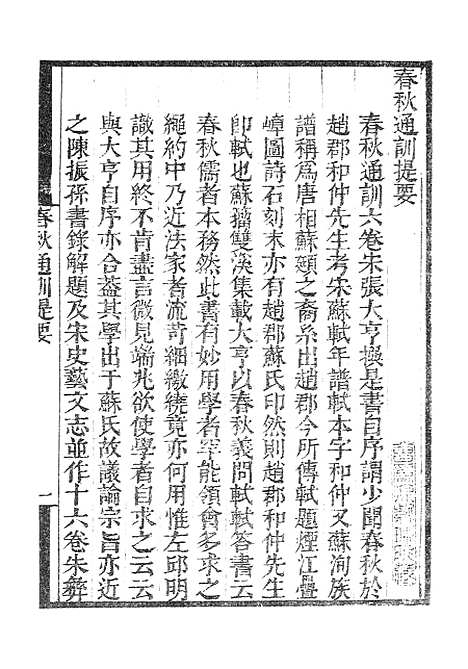 春秋通訓提要
春秋通訓六卷宋張大亨撰是書自序謂少聞春秋於
趙郡和仲先生考宋蘇軾年譜軾本字和仲又蘇洵族
譜稱爲唐相蘇頲之裔系出趙郡今所傳軾題煙江疊
嶂圖詩石刻末亦有趙郡蘇氏印然則趙郡和仲先生
即軾也蘇籀雙溪集載大亨以春秋義問軾軾答書云
春秋儒者本務然此書有妙用學者罕能領會多求之
繩約中乃近法家者流苛細繳繞竟亦何用惟左邱明
識其用終不肯盡言微見端兆欲使學者自求之云云
與大亨自序亦合蓋其學出于蘇氏故議論宗旨亦近
之陳振孫書錄解題及宋史藝文志並作十六卷朱彝
春秋通訓提要
一